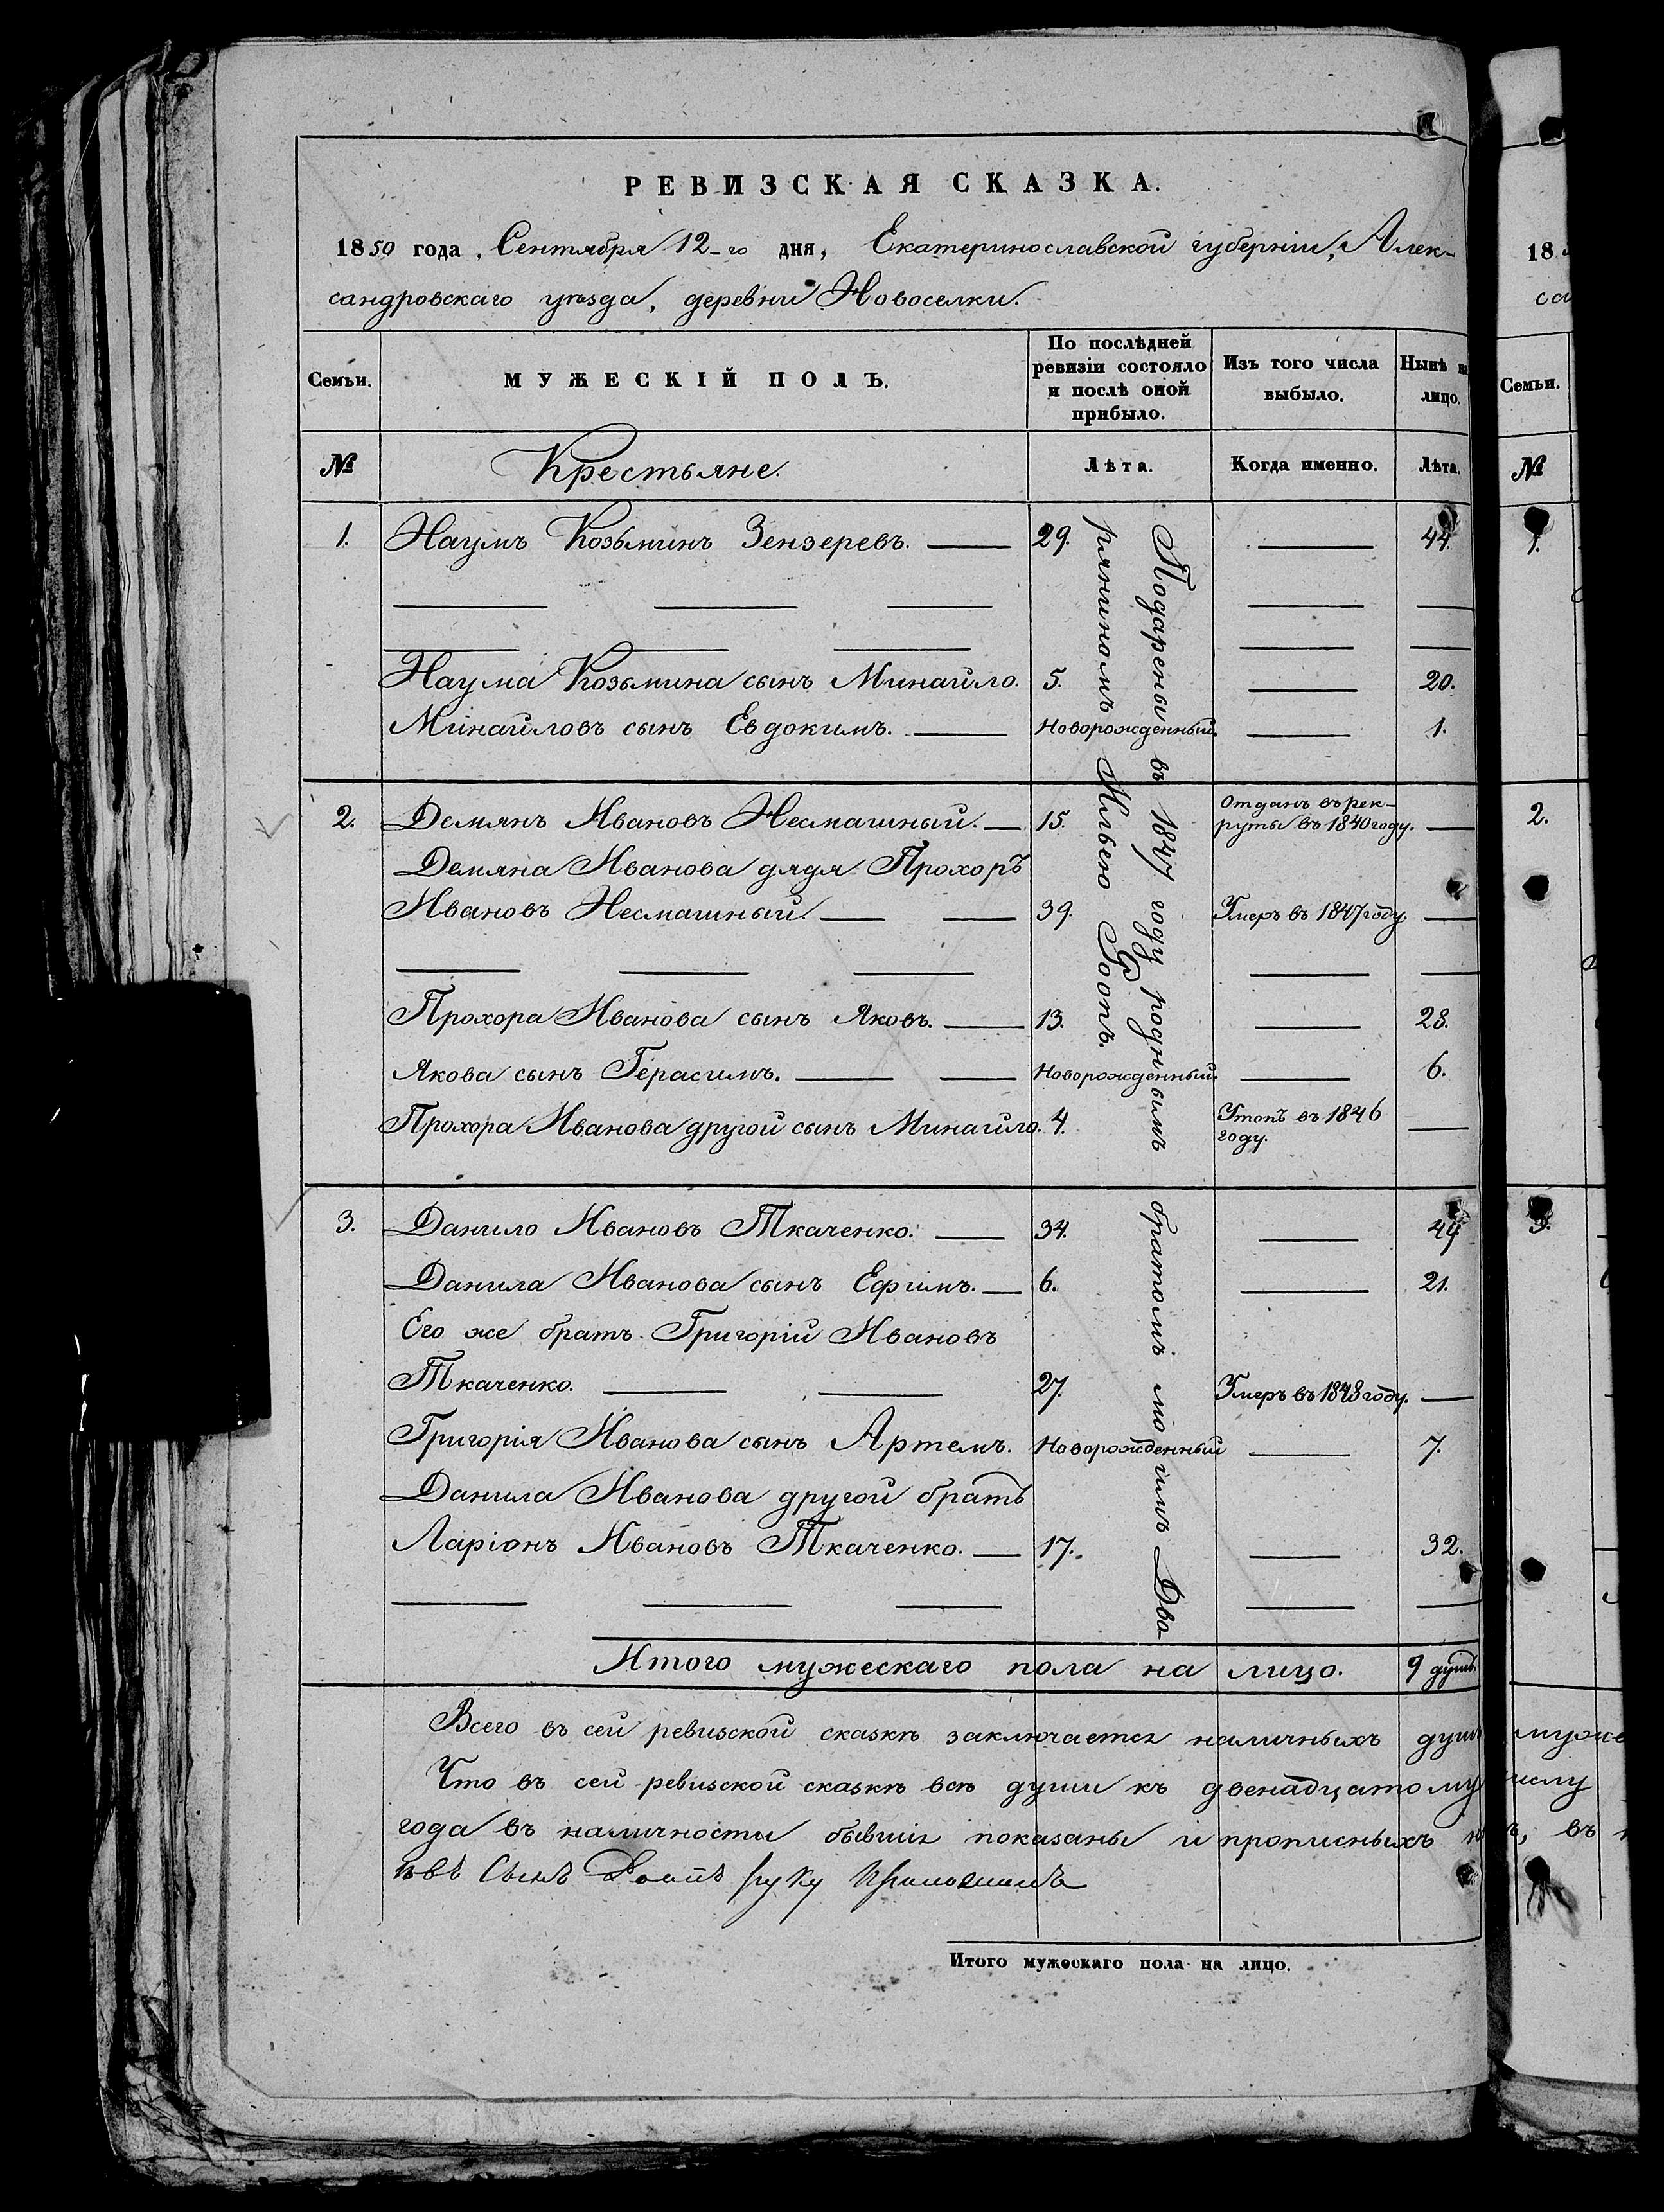 РЕВИЗСКАЯ СКАЗКА.
1850 года, Сентября 12-го дня, Екатеринославской губерніи, Алек-
сандровскаго уѣзда, деревни Новоселки.
Семьи.
МУЖЕСКІЙ ПОЛЪ.
По послѣдней
ревизіи состояло
и послѣ оной
прибыло.
Изъ того числа
выбыло.
Нынѣ на
лицо.
№ Крестьяне. Лѣта. Когда именно. Лѣта.
1. Наумъ Козьминъ Зензеревъ. — 29. — 44.
Наума Козьмина сынъ Михайло. 5. — 20.
Михайловъ сынъ Евдокимъ. — Новорожденный. — 1.
2. Демянъ Ивановъ Несмашный. — 15. Отданъ въ рек-
руты въ 1840 году. —
Демяна Иванова дядя Прохоръ
Ивановъ Несмашный. — — 39. Умеръ въ 1847 году. —
Прохора Иванова сынъ Яковъ. — 13. — 28.
Якова сынъ Герасимъ. — — Новорожденный. — 6.
Прохора Иванова другой сынъ Михайло. 4. Утопъ въ 1846
году. —
3. Данило Ивановъ Ткаченко. — 34. — 49
Данила Иванова сынъ Ефимъ. — 6. — 21.
Его же братъ Григорій Ивановъ
Ткаченко. — — 27. Умеръ въ 1848 году. —
Григорія Иванова сынъ Артемъ. Новорожденный — 7.
Данила Иванова другой братъ
Ларіонъ Ивановъ Ткаченко. — 17. — 32.
Подарены въ 1847 году роднымъ братомъ моимъ Дво-
ряниномъ Ильею Роопъ.
Итого мужескаго пола на лицо. 9 душъ.
Всего въ сей ревизской сказкѣ заключается наличныхъ душъ муже
Что въ сей ревизской сказкѣ всѣ души къ двенадцатому числу
года въ наличности бывшія показаны и прописныхъ въ
Сынъ Роопъ руку приложилъ
Итого мужескаго пола на лицо.
18
са
Семьи.
№
1.
2.
3.